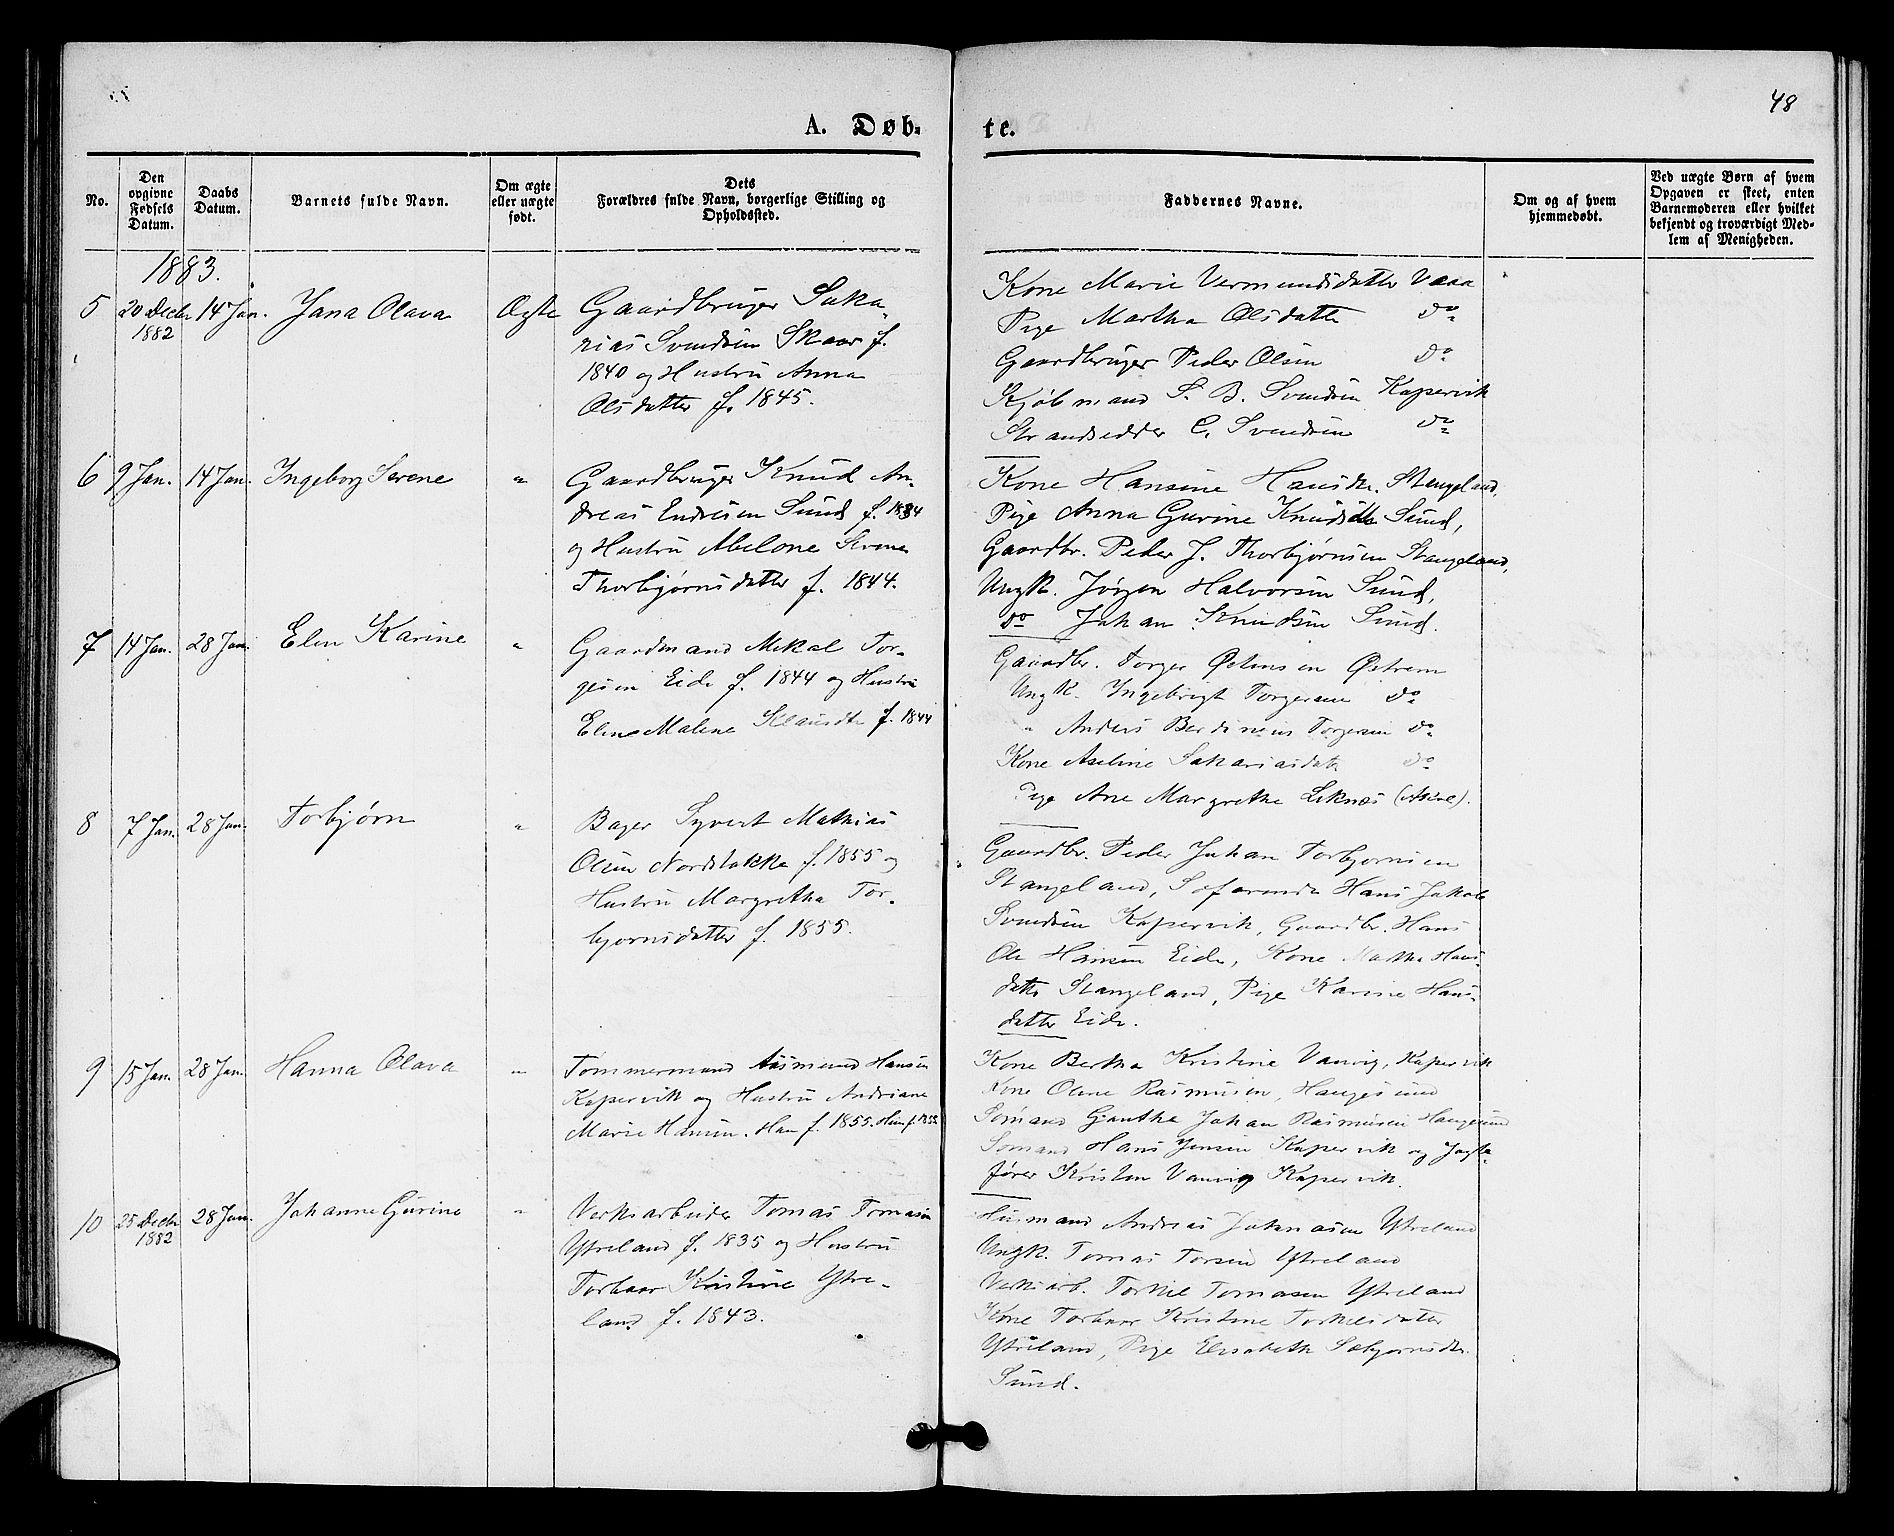 48
A. Døb-
te.
No.
Den opgivne Fødsels Datum.
Daabs Datum.
Barnets fulde Navn.
Om ægte eller uægte født.
Dets Forældres fulde Navn, borgerlige Stilling og Opholdssted.
Faddernes Navne.
Om og af hvem hjemmedøbt.
Ved uægte Børn af hvem Opgaven er skeet, enten Barnemoderen eller hvilket bekjendt og troværdigt Medlem af Menigheden.
1883.
5 20 Decbr 1882 14 Jan. Jana Olava Ægte
Gaardbruger Saka-
rias Svendsen Skaar f.
1840 og Hustru Anna
Olsdatter f. 1845.
Kone Marie Vermundsdatter Vaaa
Pige Martha Olsdatter do
Gaardbruger Peder Olsen do
Kjøbmand S. B. Svendsen Kopervik
Strandsidder C. Svendsen do
6 9 Jan. 14 Jan. Ingeborg Serene "
Gaardbruger Knud An-
dreas Endresen Sund f. 1834
og Hustru Abelone Serene
Thorbjørnsdatter f. 1844.
Kone Hansine Hansdtr. Stangeland,
Pige Anna Gurine Knudsdtr Sund,
Gaardbr. Peder J. Thorbjørnsen Stangeland,
Ungk. Jørgen Halvorsen Sund,
do Johan Knudsen Sund.
7 14 Jan. 28 Jan. Elen Karine "
Gaardmand Mikal Tor-
gesen Eide f. 1844 og Hustru
Elene Malene Klausdtr f. 1844
Gaardbr. Torger Østensen Østrem
Ungk. Ingebrigt Torgersen do
" Anders Berdineus Torgersen do
Kone Aseline Sakariasdatr do
Pige Ane Margrethe Liknes
8 7 Jan. 28 Jan. Torbjørn "
Bager Syvert Mathias
Olsen Nordstokke f. 1855 og
Hustru Margretha Tor-
bjørnsdatter f. 1855.
Gaardbr. Peder Johan Torbjørnsen
Stangeland, Søfarende Hans Jakob
Svendsen Kopervik, Gaardbr. Hans
Ole Hansen Eide, Kone Martha Hans-
datter Stangeland, Pige Karine Hans-
datter Eide.
9 15 Jan. 28 Jan. Hanna Olava "
Tømmermand Aasmund Hansen
Kopervik og Hustru Andriane
Marie Hansen. Han f. 1855. Hun f. 1855
Kone Bertha Kristine Vanvig, Kopervik
Kone Oline Rasmusen, Haugesund
Sømand Johan Rasmusen Haugesund
Sømand Hans Jensen Kopervik og Jagte-
fører Kristen Vanvig Kopervik.
10 25 Decbr 1882 28 Jan. Johanne Gurine "
Verksarbeider Tomas Tomasen
Ytreland f. 1835 og Hustru
Torbaar Kristine Ytre-
land f. 1843.
Husmand Andreas Johnasen Ytreland
Ungk. Tomas Torsen Ytreland
Verksarb. Torkel Tomasen Ytreland
Kone Torbaar Kristine Torkelsdatter
Ytreland, Pige Elisabeth Sæbjørnsdtr
Sund.